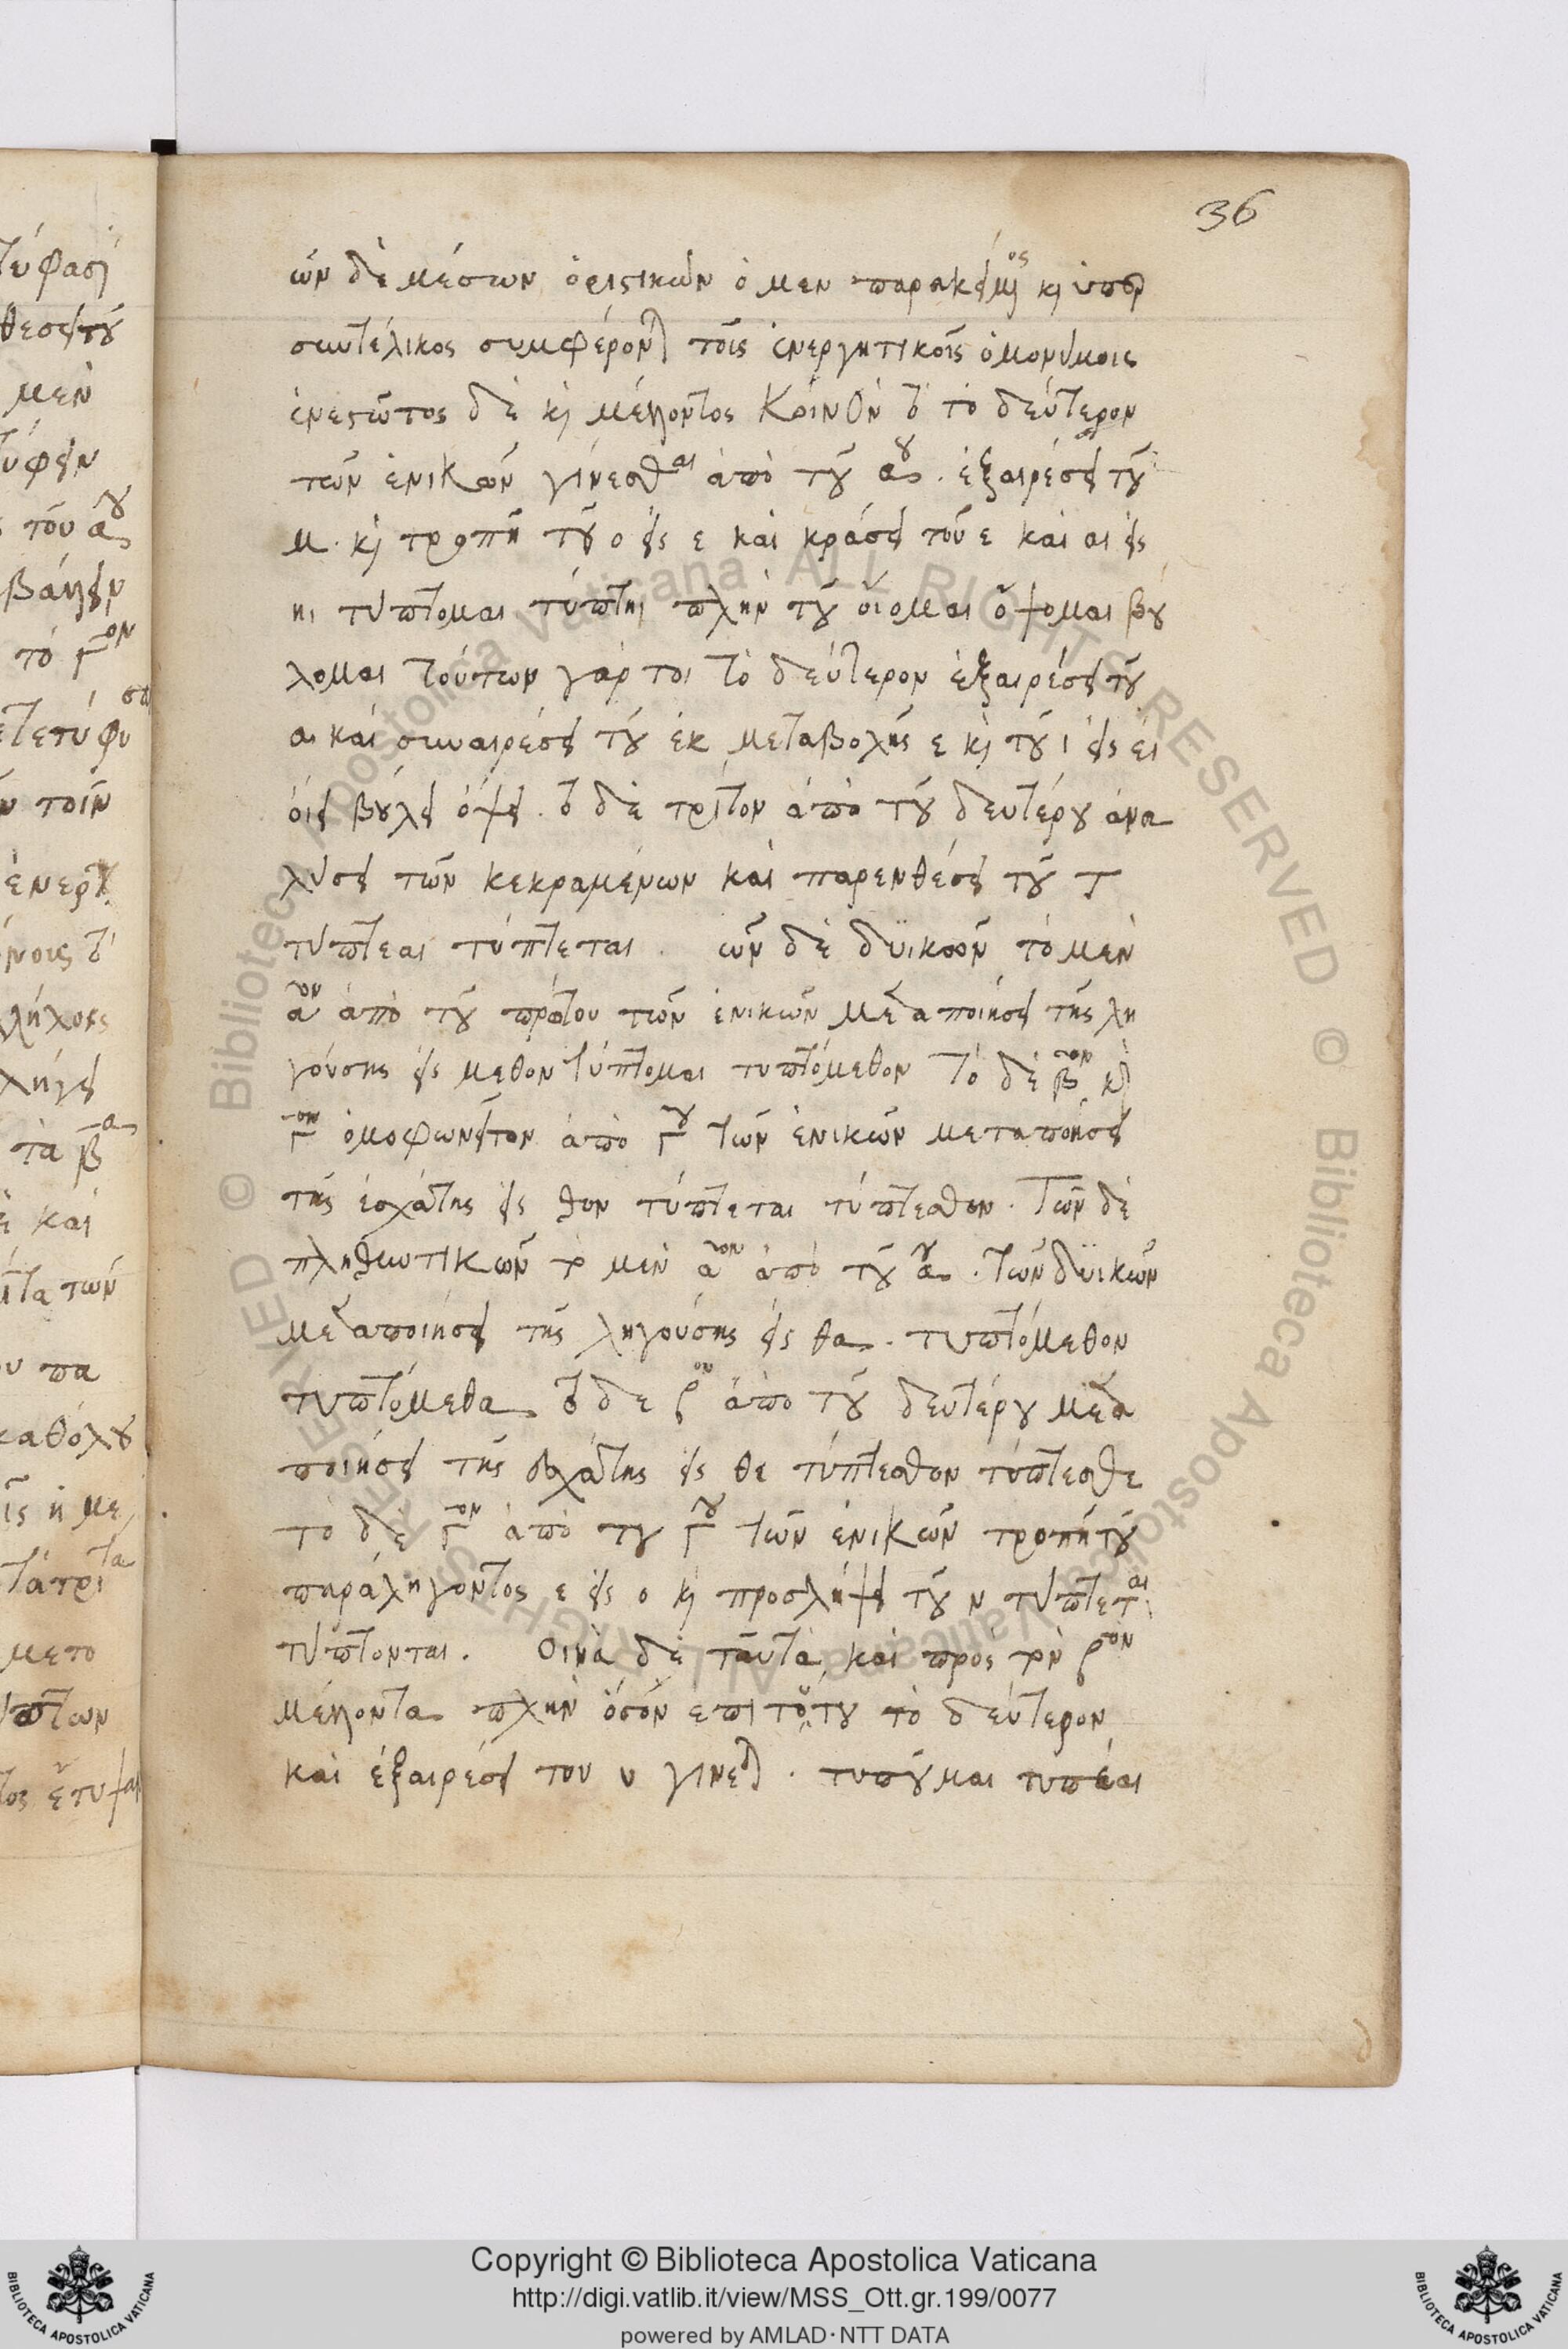 36
ων δὲ μέσων ὁριστικῶν ὁ μεν παρακείμος κ ὑπερ
συντέλικος συμφέροντ τοῖς ἐνεργητικοῖς ὁμονύμοις
ἐνεστῶτος δὲ κ μέλλοντος Κοινὸν τὸ δεύτερον
τῶν ἑνικῶν γίνεσθαι ἀπὸ τοῦ αου. ἐξαιρέσει τοῦ
μ. κ τροπῆ τοῦ ο εἰς ε καὶ κράσει τοῦ ε καὶ αι εἰς
ηι τύπτομαι τύπτηι πλὴν τοῦ οἴομαι ὄψομαι βού
λομαι τούτων γάρ τοι τὸ δεύτερον ἐξαιρέσει τοῦ
α καὶ συναιρέσει τοῦ ἐκ μεταβολῆς ε κ τοῦ ι εἰς ει
οἴει βούλει ὄψει. τὸ δὲ τρίτον ἀπὸ τοῦ δευτέρου ἀνα
λύσει τῶν κεκραμένων καὶ παρενθέσει τοῦ τ
τύπτεαι τύπτεται. ων δὲ δυϊκῶν τὸ μὲν
αον ἀπὸ τοῦ πρώτου τῶν ἑνικῶν μεταποιήσει τῆς λη
γούσης εἰς μεθον τύπτομαι τυπτόμεθον τὸ δὲ βον κ
γον ὁμοφωνεῖτον ἀπὸ γου τῶν ἑνικῶν μεταποιήσει
τῆς ἐσχάτης εἰς θον τύπτεται τύπτεσθον. Τῶν δὲ
πληθυντικῶν το μὲν αον ἀπὸ τοῦ αου. τῶν δυϊκῶν
μεταποιήσει τῆς ληγούσης εἰς θα. τυπτόμεθον
τυπτόμεθα τὸ δε βον ἀπὸ τοῦ δευτέρου μετα
ποιήσει τῆς ἐσχάτης εἰς θε τύπτεσθον τύπτεσθε
τὸ δὲ γον ἀπὸ του γου τῶν ἑνικῶν τροπῆ τοῦ
παραλήγοντος ε εἰς ο κ προσλήψει τοῦ ν τύπτεται
τύπτονται. δὲ ταῦτα καὶ πρὸς τὸν βον
μέλλοντα πλὴν ὅσον επι τούτου τὸ δεύτερον
καὶ ἐξαιρέσει του υ γινετ. τυποῦμαι τυπέαι
Copyright © Biblioteca Apostolica Vaticana
http://digi.vatlib.it/view/MSS_Ott.gr.199/0077
powered by AMLAD·NTT DATA